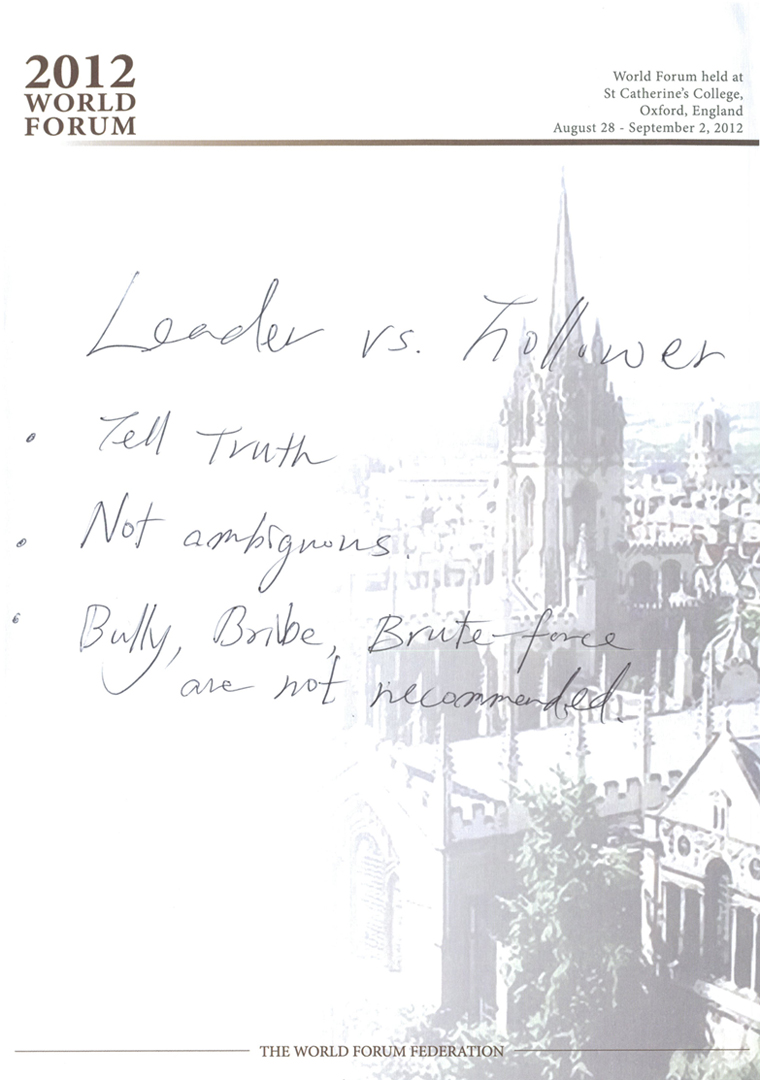 2012
WORLD
FORUM
World Forum held at
St Catherine's College,
Oxford, England
August 28 - September 2, 2012
Leader vs. Follower
• Tell Truth
• Not ambiguous.
• Bully, Bribe, Brute-force
are not recommended.
THE WORLD FORUM FEDERATION